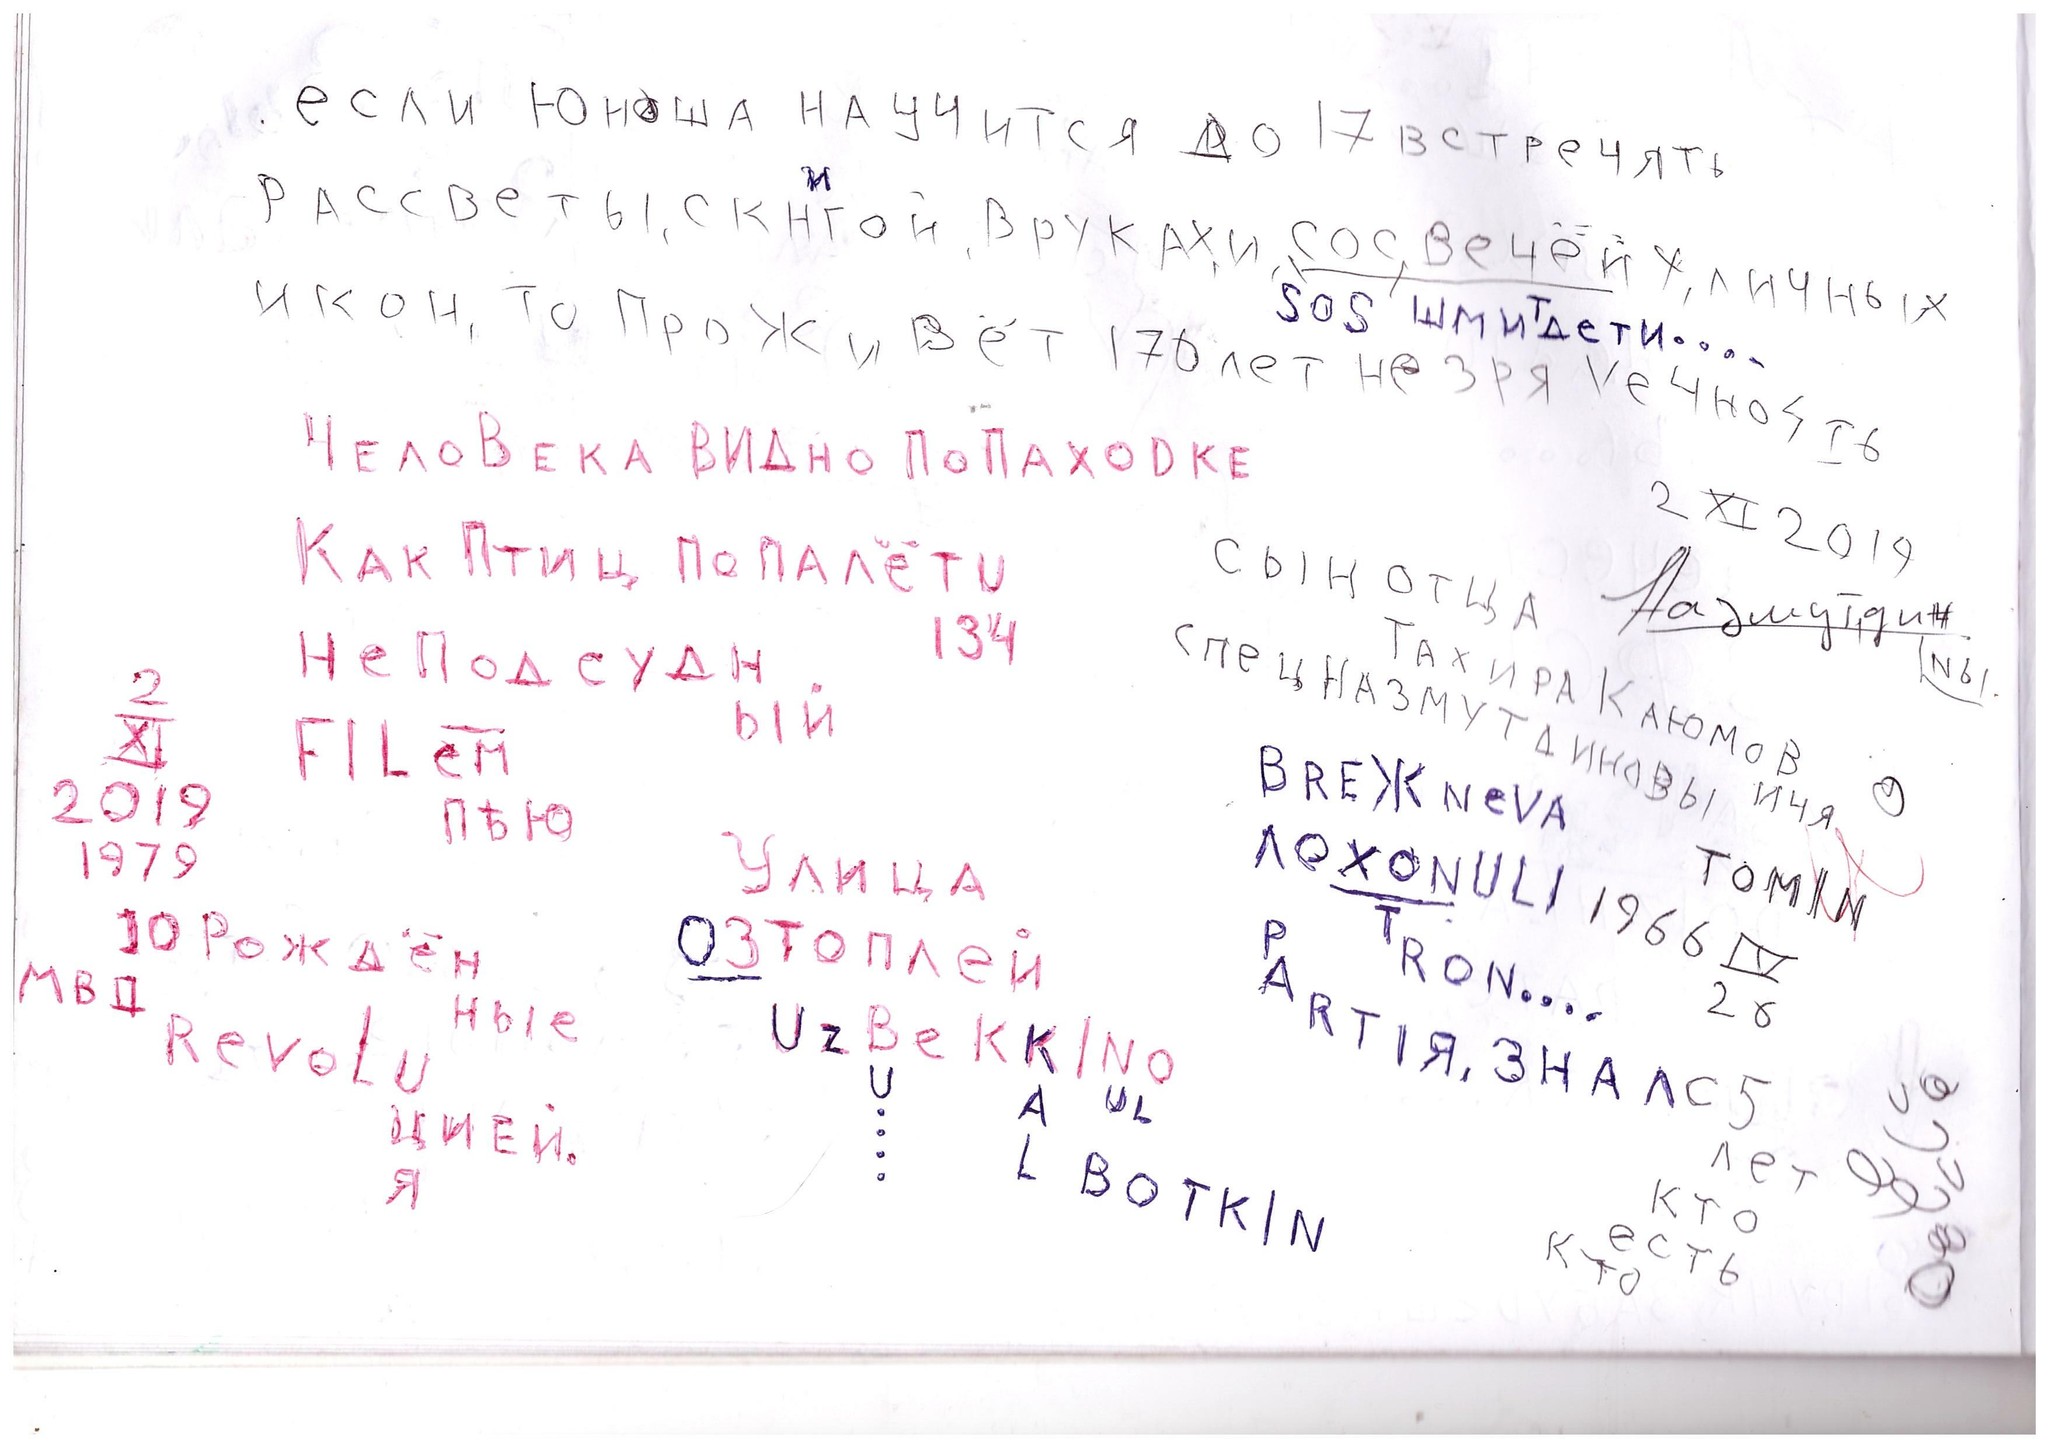 если юноша научится до 17 встречять
рассветы, с книгой, в руках, и, сос, вечёй у, личных
SOS шмитдети....
икон, то проживёт 170 лет не зря Vечность
2 XI 2019
ЧелоВека видно ПоПаходке
Как Птиц ПоПалётu
134
НеПодсудн
ый
FILем
пѣю
2
XI
2019
1979
10 Рождён
ные
МВД
RevoLu
цией.
я
Улица
ОЗтоплей
UzBekKINO
U.....
KAL
UL
BOTKIN
сын отца
Тахира Каюмов
спецназмутдиновы ичя
ны.
BREЖNeVA
ЛОХОNULI 1966 IV
26
TOMIN
TRON....
PARTIЯ, ЗНАЛ с 5
лет
кто
есть
кто